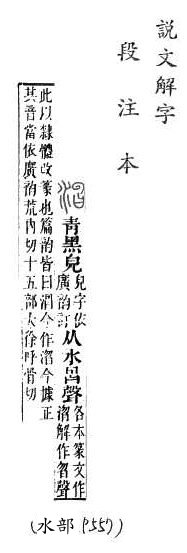 説文解字
段注本
青黑皃皃字依廣韵訂从水聲各本篆文作解作聲
此以隸體改篆也篇韵皆曰今作今據正
其音當依廣韵荒内切十五部大徐呼骨切
(水部 P557)